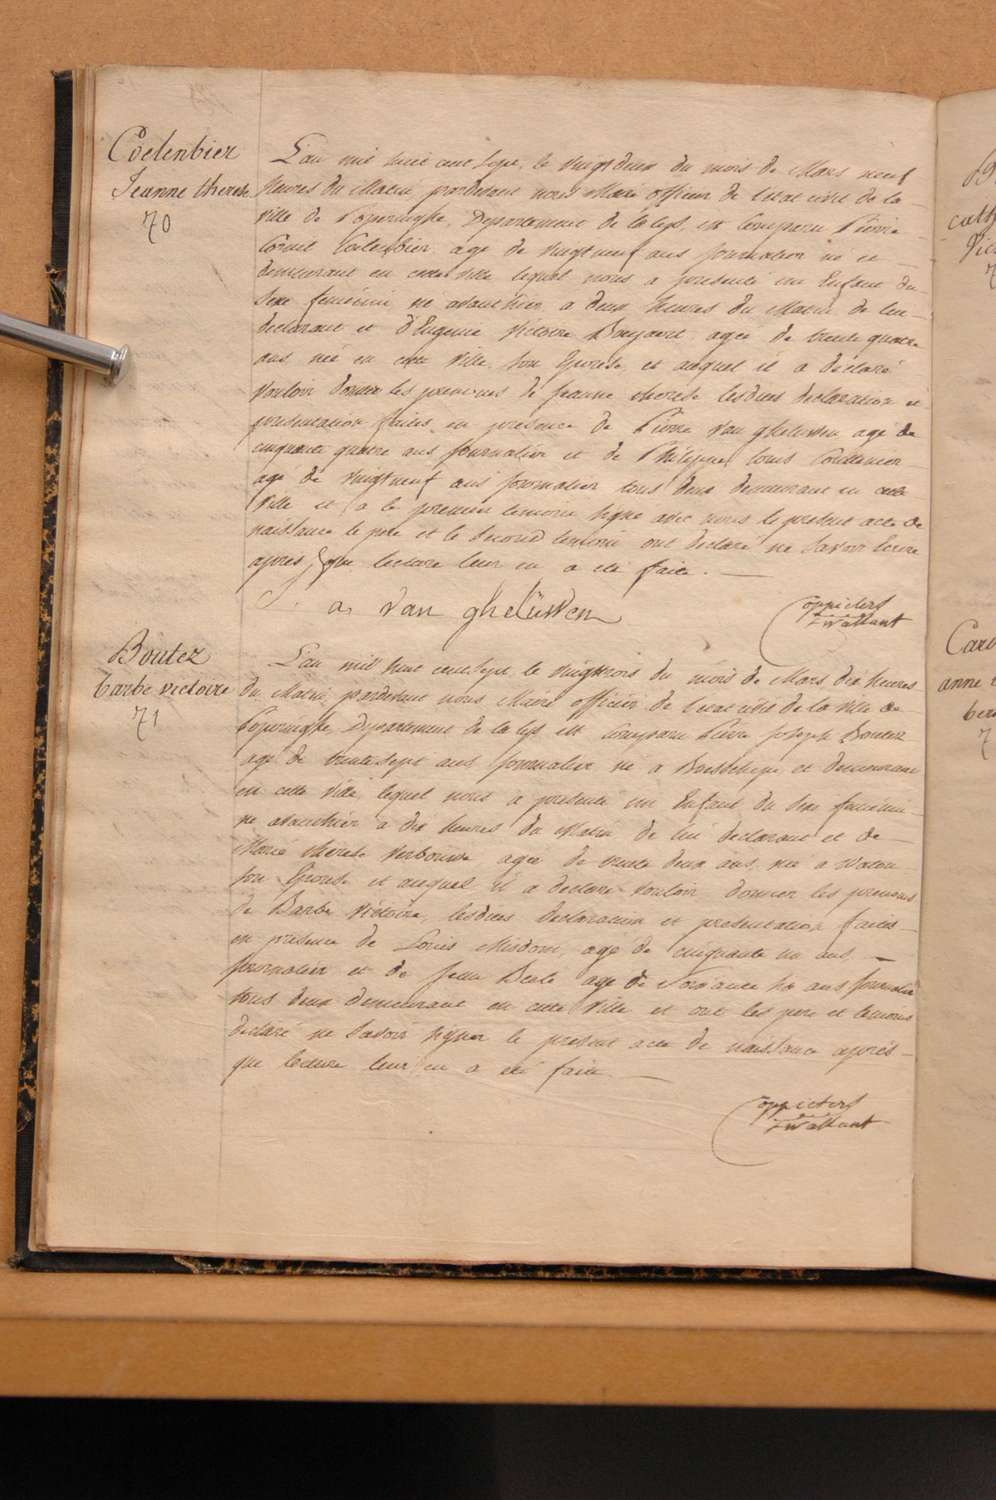 Coelenbier
Jeanne therese
70
L'an mil huit cent sept, le vingt deux du mois de Mars neuf
heures du Matin pardevant nous Maire officier de l'etat civil de la
ville de Poperinghe, Departement de la Lys, est Comparu Pierre
Coelenbier agé de vingt neuf ans journalier né et
demeurant en cette ville lequel nous a presenté un Enfant du
Sexe feminin né avanthier a deux heures du Matin de lui
declarant et d'Eugenie Victoire agée de trente quatre
ans née en cette Ville, son Epouse, et auquel il a déclaré
vouloir donner les prenoms de Jeanne therese lesdites declaration et
presentation faites en presence de Pierre Van ghelussen agé de
cinquante quatre ans journalier et de Philippe Louis
agé de vingt neuf ans journalier tous deux demeurant en cette
Ville et a le premier temoin signé avec nous le present acte de
naissance le pere et le second temoin ont declaré ne savoir Ecrire
apres que lecture leur en a été faite.
a, Van ghelüssen
Coppieters
t'wallant
Boutez
barbe victoire
71
L'an mil huit cent sept le vingt trois du mois de Mars dix heures
du Matin, pardevant nous Maire officier de l'etat civil de la ville de
Poperinghe, Departement de la Lys est Comparu Pierre Joseph Boutez
agé de trente sept ans journalier né a et demeurant
en cette Ville, lequel nous a presenté un Enfant du sexe feminin
né avanthier a dix heures du Matin de lui declarant et de
Marie therese agée de trente deux ans, née a Watou
son Epouse et auquel il a declaré vouloir donner les prenoms
de Barbe Victoire, lesdites declaration et presentation faites
en presence de Louis Misdom, agé de cinquante un ans
journalier et de Jean agé de Soixante six ans journalier
tous deux demeurant en cette Ville et ont les pere et temoins
declaré ne savoir signer le present acte de naissance aprés
que lecture leur en a été faite.
Coppieters
t'wallant
Caro
anne